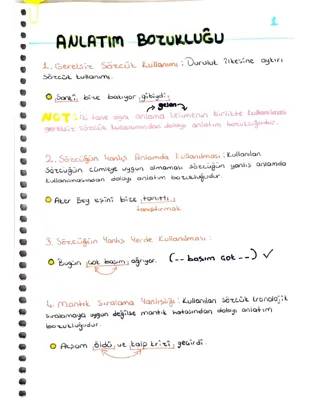 1
ANLATIM BOZUKLUĞU
1. Gereksiz Sözcük Kullanımı : Duruluk ilkesine aykırı
sözcük kullanımı.
Sanki bize bakıyor gibiydi.
NOT : İki tane aynı anlama kelimenin birlikte kullanılması
gereksiz sözcük kullanımından dolayı anlatım bozukluğudur.
2. Sözcüğün Yanlış Anlamda Kullanılması : Kullanılan
sözcüğün cümleye uygun olmaması sözcüğün yanlış anlamda
kullanılmasından dolayı anlatım bozukluğudur.
Aker Bey eşini bize tanıttı.
tanıştırmak
3. Sözcüğün Yanlış Yerde Kullanılması :
Bugün çok başım ağrıyor. (-- başım çok --) ✓
4. Mantık Sıralama Yanlışlığı : Kullanılan sözcük kronolojik
sıralamaya uygun değilse mantık hatasından dolayı anlatım
bozukluğudur.
Akşam öldü ve kalp krizi geçirdi.